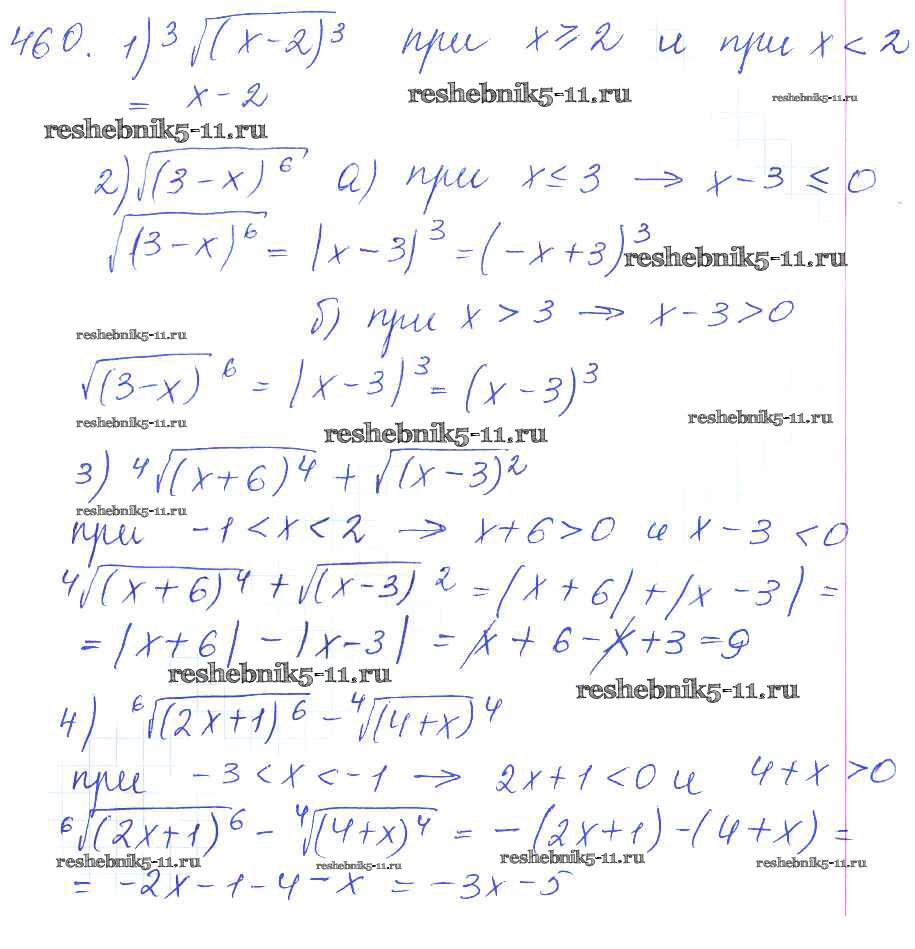 460. 1) ³√(x-2)³ при x ≥ 2 и при x < 2
= x-2
reshebnik5-11.ru reshebnik5-11.ru
reshebnik5-11.ru
2) √(3-x)⁶ а) при x ≤ 3 → x-3 ≤ 0
√(3-x)⁶ = |x-3|³ = (-x+3)³
reshebnik5-11.ru
б) при x > 3 → x-3>0
reshebnik5-11.ru
√(3-x)⁶ = |x-3|³ = (x-3)³
reshebnik5-11.ru reshebnik5-11.ru
reshebnik5-11.ru
3) ⁴√(x+6)⁴ + √(x-3)²
reshebnik5-11.ru
при -1<x<2 → x+6>0 и x-3<0
⁴√(x+6)⁴ + √(x-3)² = |x+6| + |x-3| =
= |x+6| - |x-3| = x+6-x+3 = 9
reshebnik5-11.ru reshebnik5-11.ru
4) ⁶√(2x+1)⁶ - ⁴√(4+x)⁴
при -3<x<-1 → 2x+1<0 и 4+x>0
⁶√(2x+1)⁶ - ⁴√(4+x)⁴ = -(2x+1)-(4+x) =
reshebnik5-11.ru reshebnik5-11.ru reshebnik5-11.ru reshebnik5-11.ru
= -2x-1-4-x = -3x-5